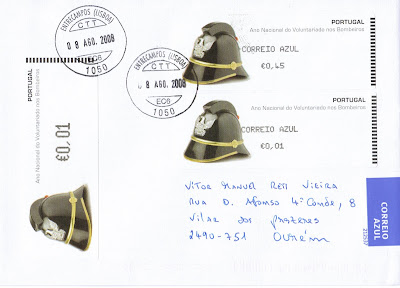 ENTRECAMPOS (LISBOA)
CTT
08 AGO. 2008
EC6
1050
ENTRECAMPOS (LISBOA)
CTT
08 AGO. 2008
EC6
1050
PORTUGAL
Ano Nacional do Voluntariado nos Bombeiros
CORREIO AZUL
€0,45
PORTUGAL
Ano Nacional do Voluntariado nos Bombeiros
CORREIO AZUL
€0,01
PORTUGAL
Ano Nacional do Voluntariado nos Bombeiros
€0,01
Vitor Manuel Reis Vieira
Rua D. Afonso 4º Conde, 8
Vilar dos Prazeres
2490-751 Ourém
CORREIO
AZUL